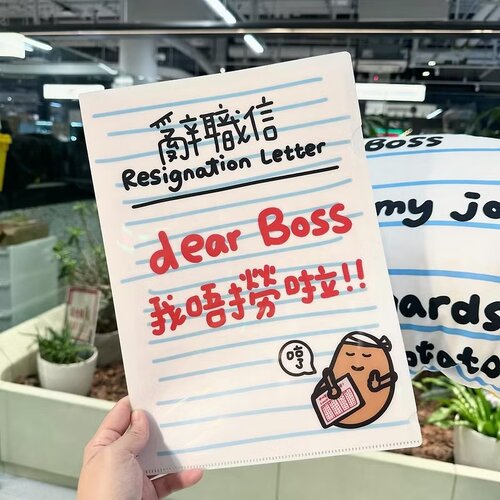 辭職信
Resignation Letter
dear Boss
我唔撈啦!!
哼
Boss
my jo
ards
otato